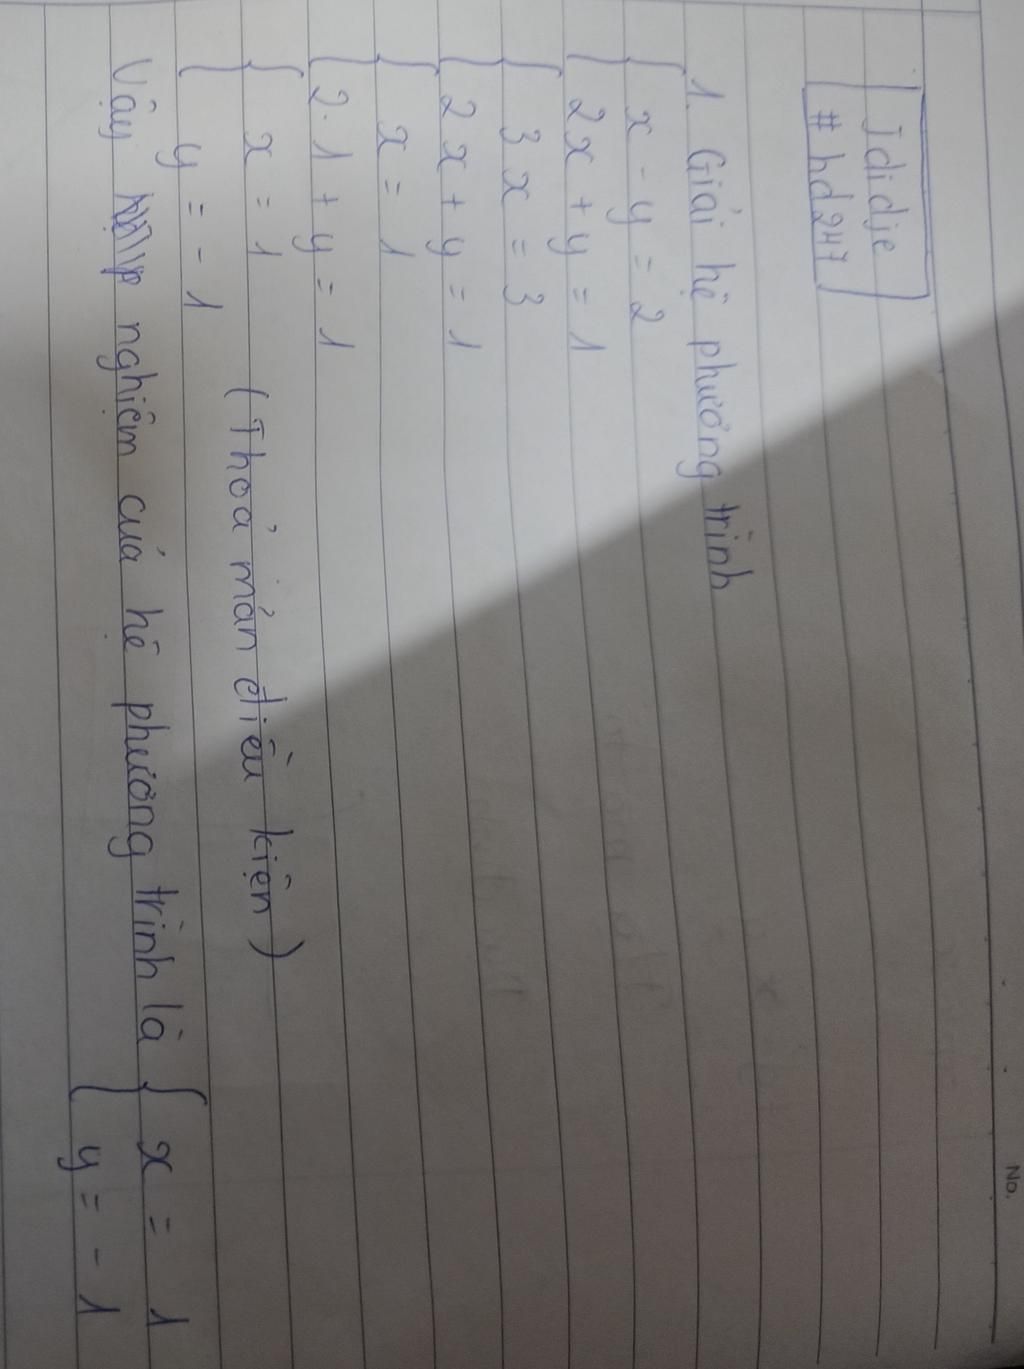 No.
Ididje
#hd247
1. Giải hệ phương trình
x - y = 2
2x + y = 1
3x = 3
2x + y = 1
x = 1
2.1 + y = 1
x = 1
(Thoả mản điều kiện)
y = -1
Vậy nghiệm của hệ phương trình là { x = 1
y = -1